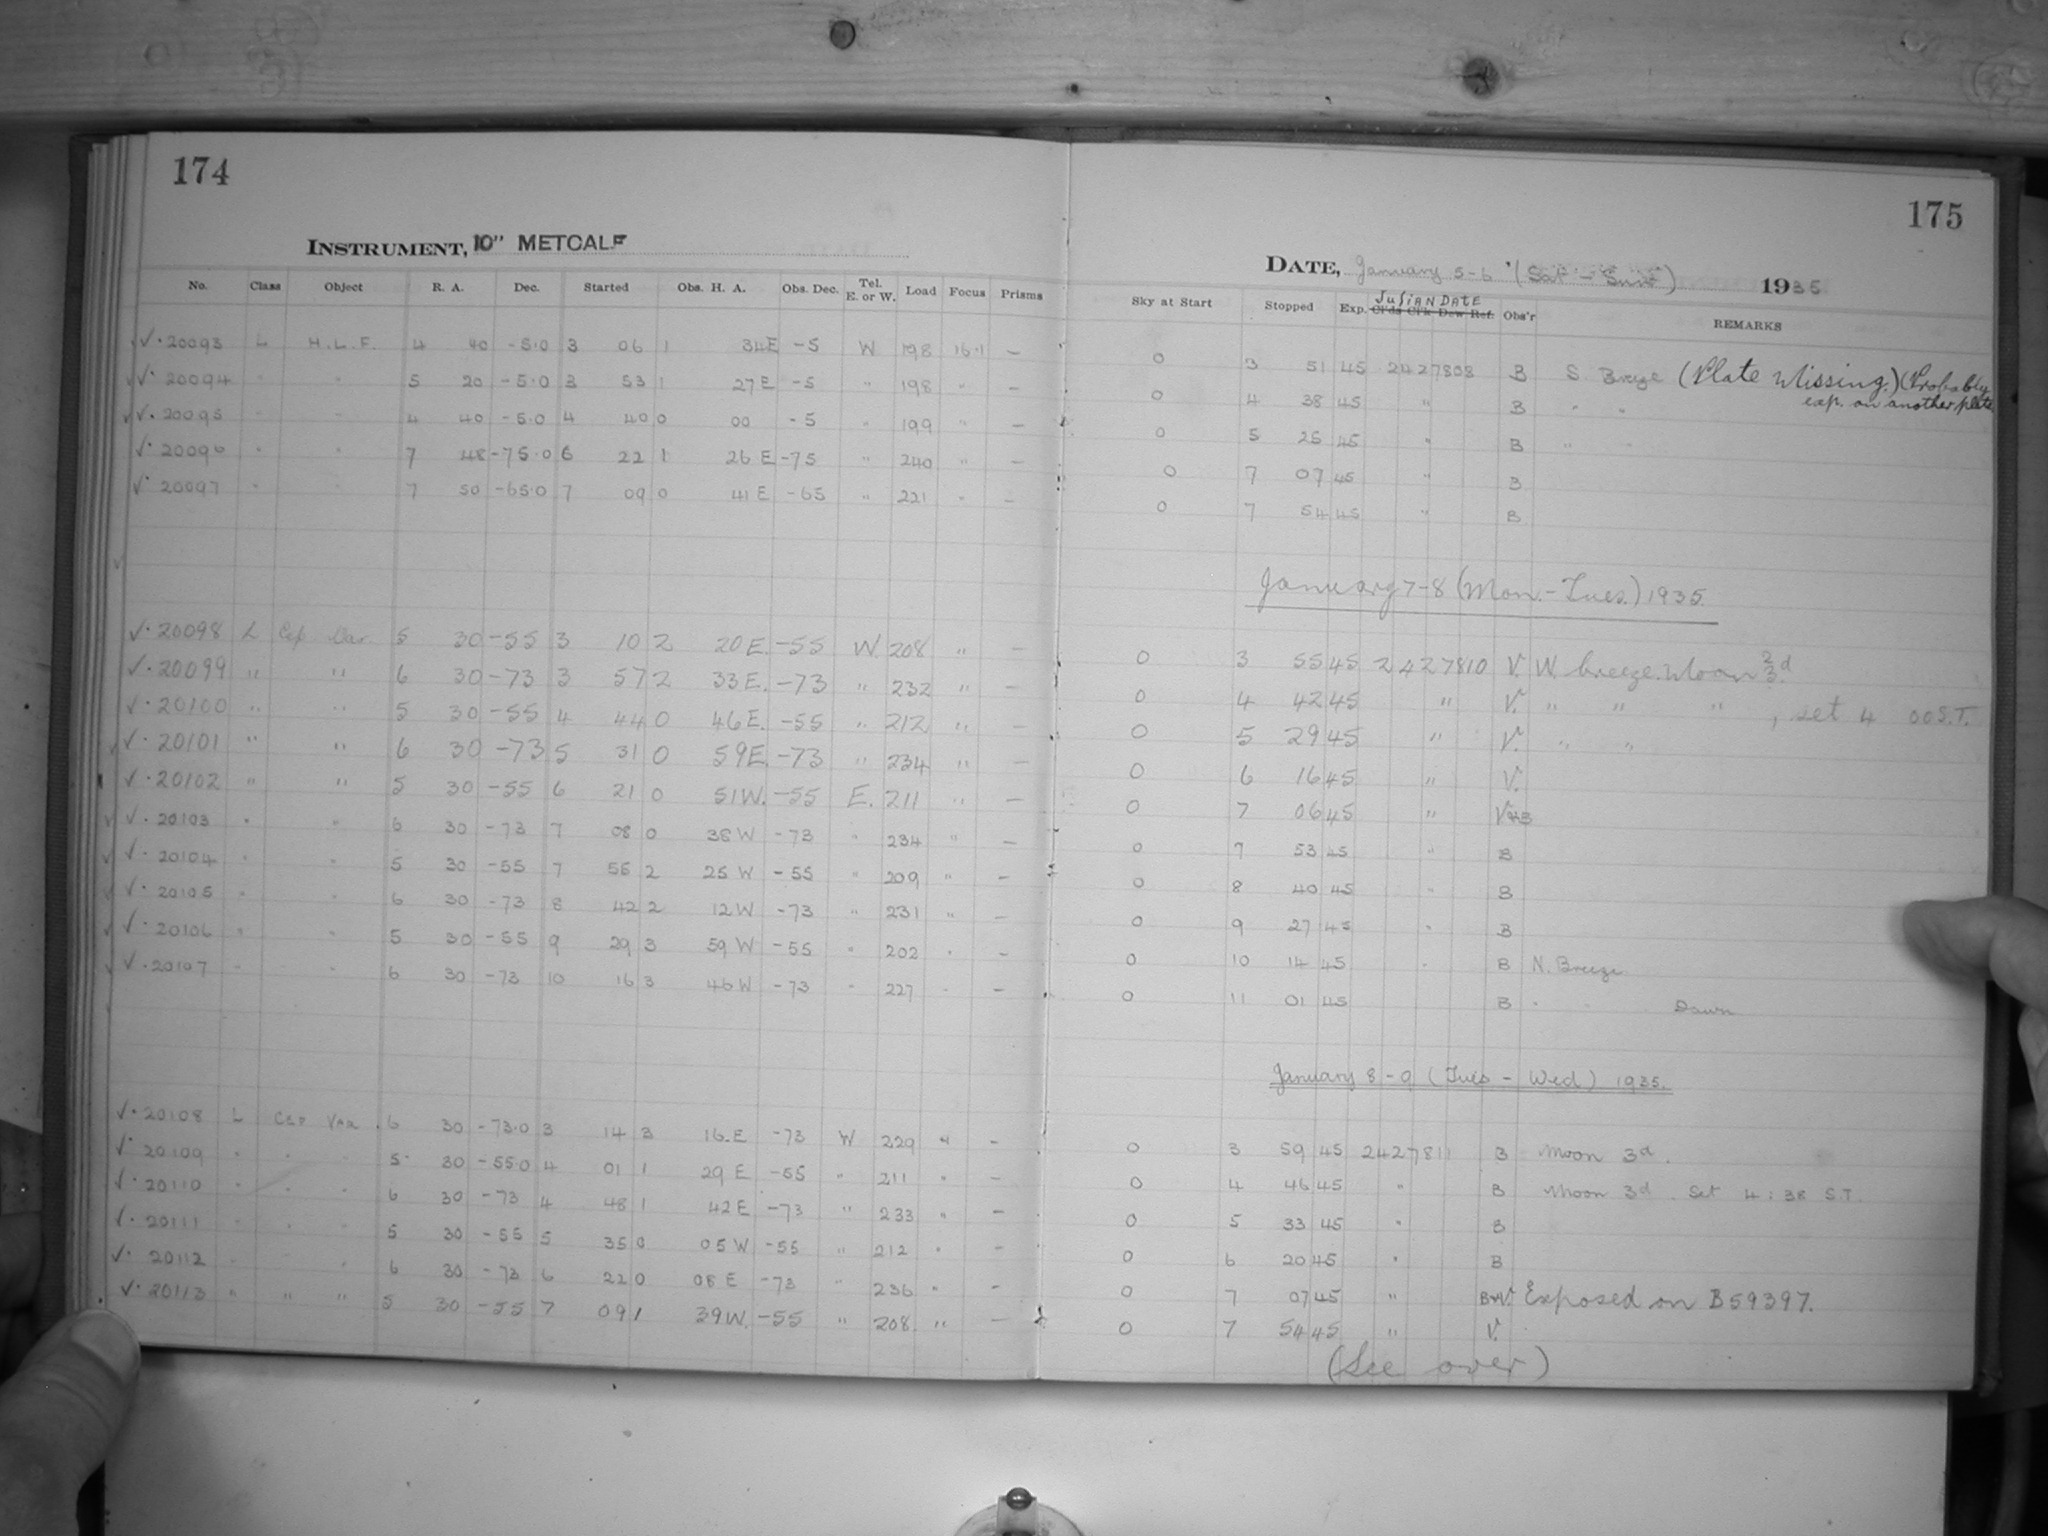 174
INSTRUMENT, 10" METCALF
No. Class Object R. A. Dec. Started Obs. H. A. Obs. Dec. Tel. E. or W. Load Focus Prisms
√· 20093 L H.L.F. 4 40 -5.0 3 06 1 34E -5 W 198 16.1 —
√· 20094 " " 5 20 -5.0 3 53 1 27E -5 " 198 " —
√· 20095 " " 4 40 -5.0 4 40 0 00 -5 " 199 " —
√· 20096 " " 7 48 -75.0 6 22 1 26 E -75 " 240 " —
√· 20097 " " 7 50 -65.0 7 09 0 41 E -65 " 221 " —
√· 20098 L Cep Var 5 30 -55 3 10 2 20E. -55 W. 208 " —
√· 20099 " " 6 30 -73 3 57 2 33E. -73 " 232 " —
√· 20100 " " 5 30 -55 4 44 0 46E. -55 " 212 " —
√· 20101 " " 6 30 -73 5 31 0 59E. -73 " 234 " —
√· 20102 " " 5 30 -55 6 21 0 51W. -55 E. 211 " —
√· 20103 " " 6 30 -73 7 08 0 38W -73 " 234 " —
√· 20104 " " 5 30 -55 7 55 2 25 W -55 " 209 " —
√· 20105 " " 6 30 -73 8 42 2 12W -73 " 231 " —
√· 20106 " " 5 30 -55 9 29 3 59 W -55 " 202 " —
√· 20107 " " 6 30 -73 10 16 3 46W -73 " 227 " —
√· 20108 L CEP VAR 6 30 -73.0 3 14 3 16.E -73 W 229 " —
√· 20109 " " " 5 30 -55.0 4 01 1 29 E -55 " 211 " —
√· 20110 " " " 6 30 -73 4 48 1 42E -73 " 233 " —
√· 20111 " " " 5 30 -55 5 35 0 05W -55 " 212 " —
√· 20112 " " 6 30 -73 6 22 0 08 E -73 " 236 " —
√· 20113 " " " 5 30 -55 7 09 1 39W. -55 " 208. " —
175
DATE, January 5-6 (Sat - Sun) 1935
Sky at Start Stopped Exp. JuliAN DATE Cl'ds Cl'k Dew Ref. Obs'r REMARKS
0 3 51 45 2427808 B S. Breeze (Plate Missing.) (Probably
0 4 38 45 " B " " exp. on another plate.
0 5 25 45 " B " "
0 7 07 45 " B
0 7 54 45 " B
January 7-8 (Mon.-Tues.) 1935
0 3 55 45 2427810 V. W. breeze. Moon 2/3d
0 4 42 45 " V. " " " , set 4 00 S.T.
0 5 29 45 " V. " "
0 6 16 45 " V.
0 7 06 45 " V&B
0 7 53 45 " B
0 8 40 45 " B
0 9 27 45 " B
0 10 14 45 " B N. Breeze
0 11 01 45 B " " Dawn
January 8-9 (Tues - Wed) 1935.
0 3 59 45 2427811 B Moon 3d.
0 4 46 45 " B Moon 3d. Set 4:38 S.T.
0 5 33 45 " B
0 6 20 45 " B
0 7 07 45 " B+V. Exposed on B59397.
0 7 54 45 " V.
(See over)